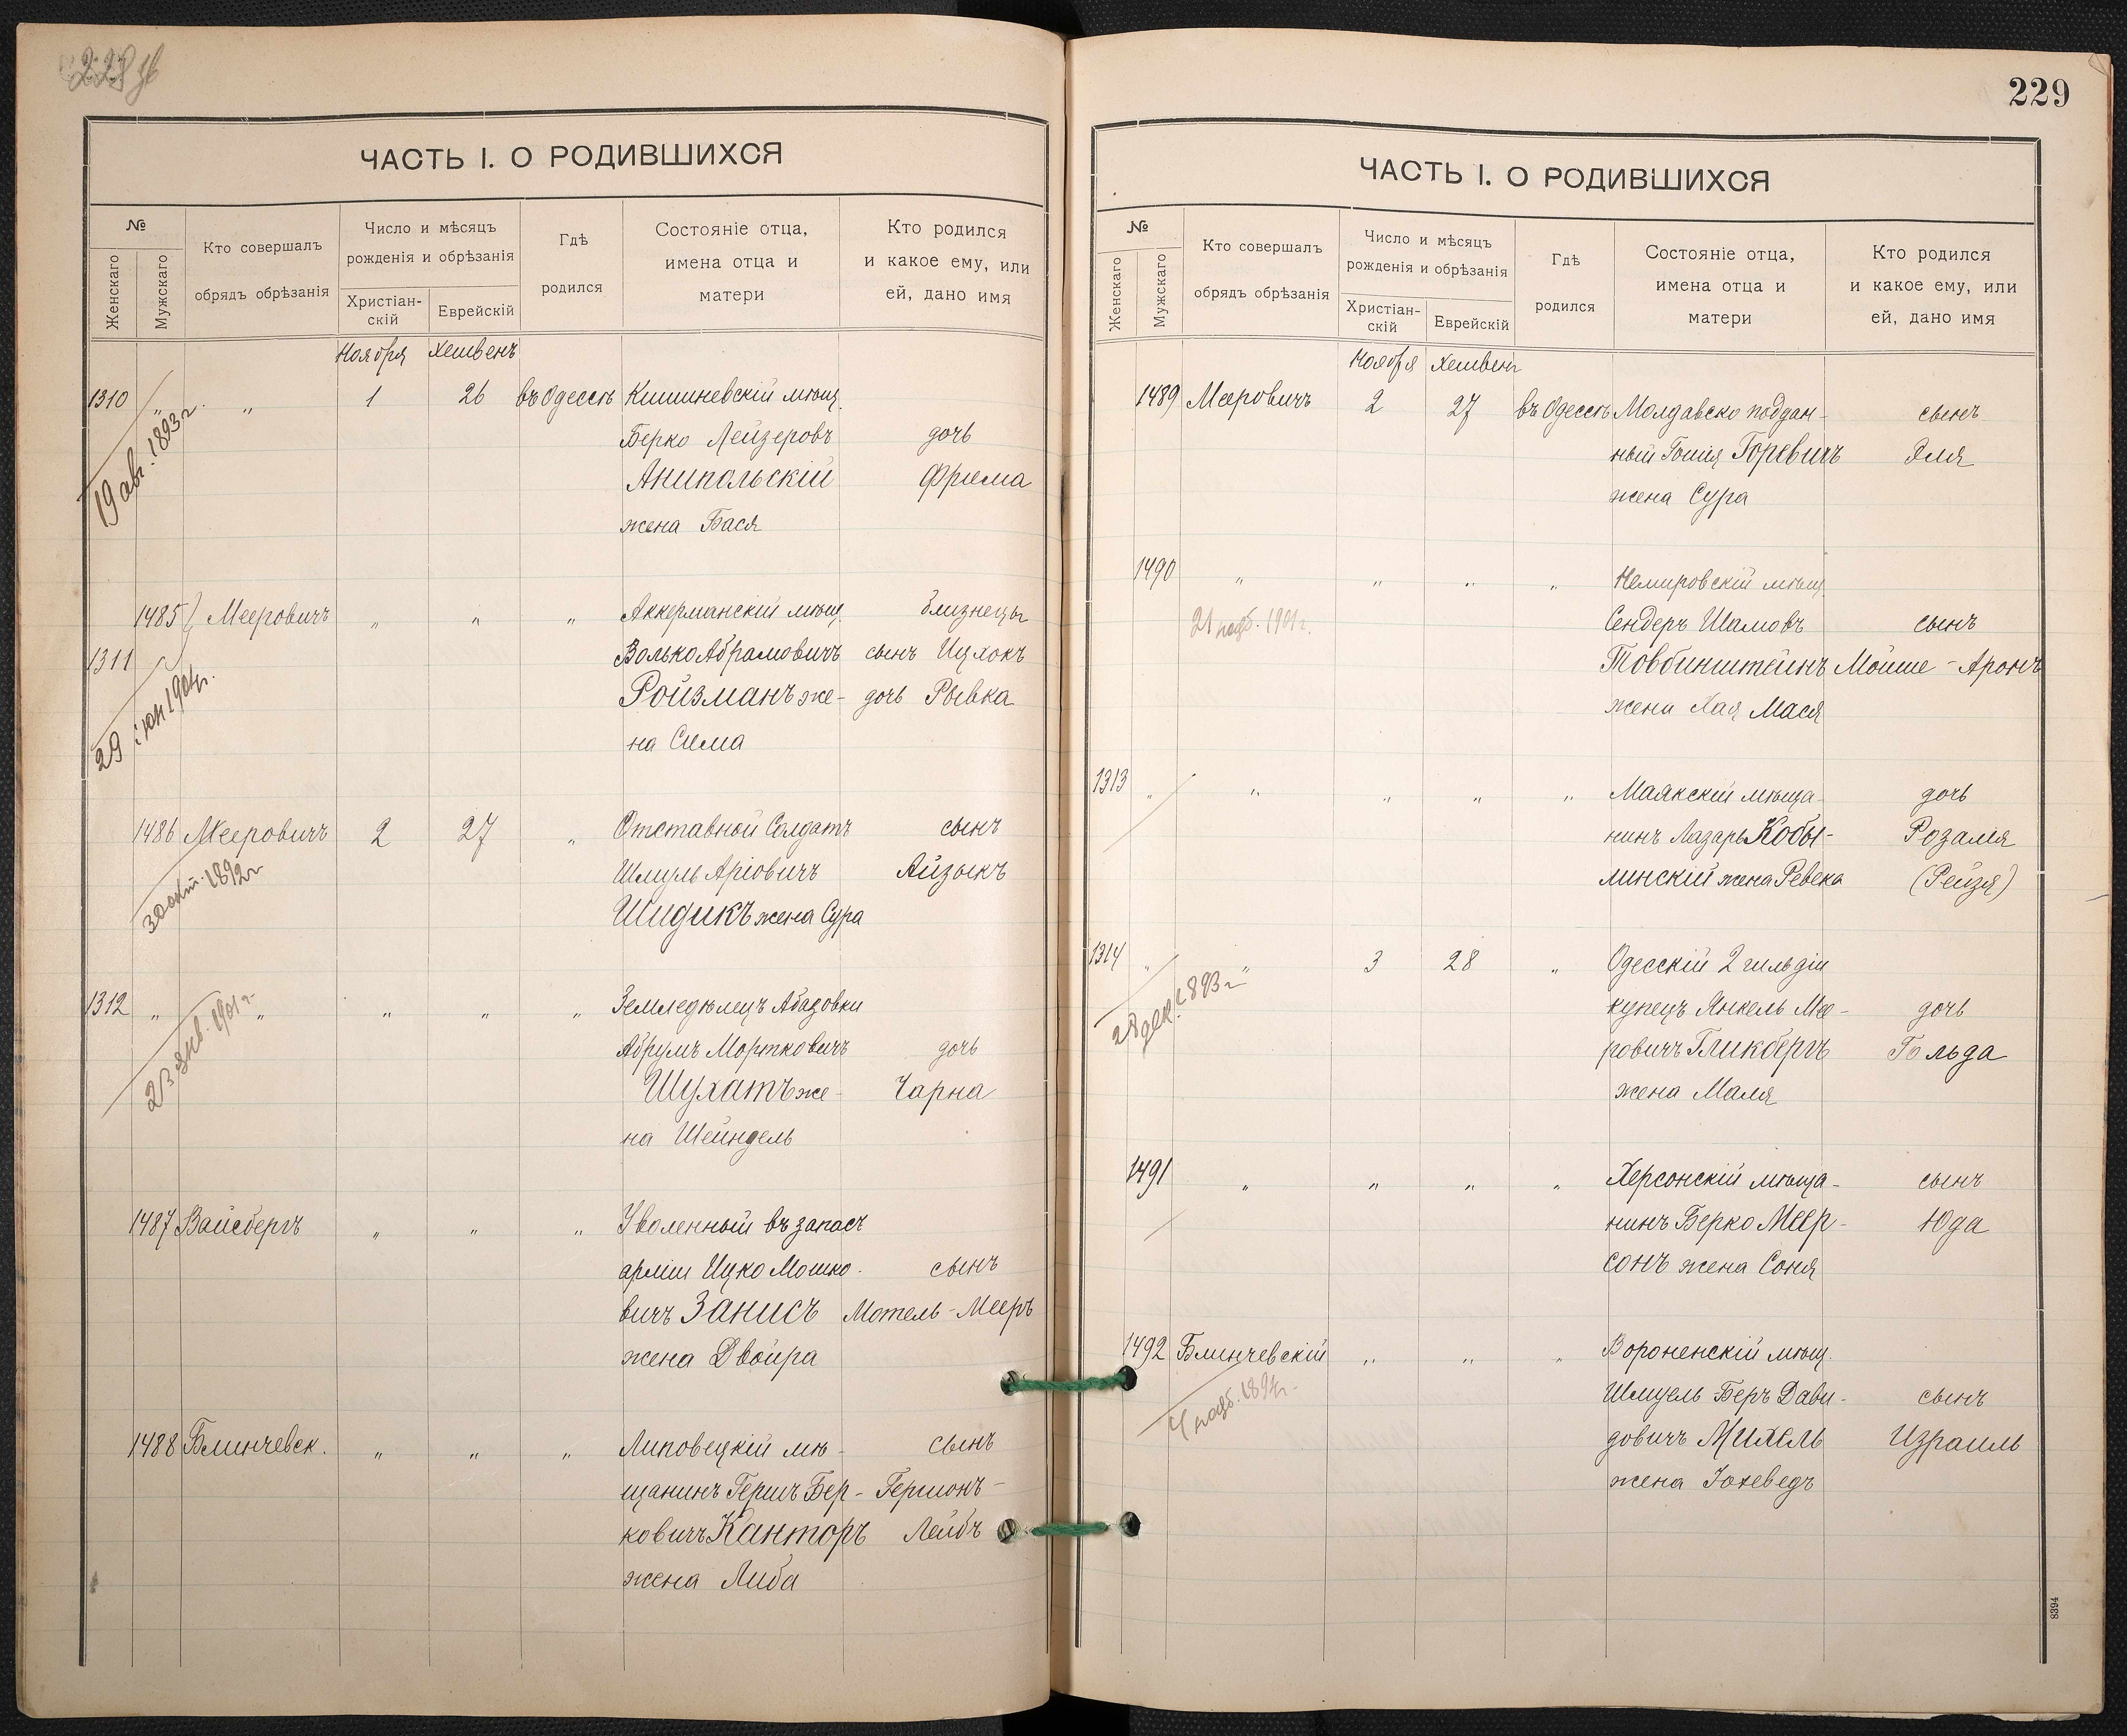 ЧАСТЬ I. О РОДИВШИХСЯ
№
Женскаго
Мужскаго
Кто совершалъ
обрядъ обрѣзанія
Число и мѣсяцъ
рожденія и обрѣзанія
Христіан-
скій
Еврейскій
Гдѣ
родился
Состояніе отца,
имена отца и
матери
Кто родился
и какое ему, или
ей, дано имя
Ноября Хешвенъ
1310 " " 1 26 въ Одессѣ Кишиневскій мѣщ.
Берко Лейзеровъ дочь
19 авг. 1893 г.
Анипольскій Фрима
жена Бася
1485 Мееровичъ " " " Аккерманскій мѣщ. близнецы
1311 Волько Абрамовичъ сынъ Ицхокъ
Ройзманъ же- дочь Рывка
29 іюн 1904 г.
на Сима
1486 Мееровичъ 2 27 " Отставной Солдатъ сынъ
30 окт. 1892 г
Шмуль Аріовичъ Айзыкъ
Шидикъ жена Сура
1312 " " " " " Земледѣлецъ Абазовки
23 янв. 1901 г.
Абрумъ Мортковичъ дочь
Шухатъ же- Чарна
на Шейндель
1487 Вайсбергъ " " " Уволенный въ запасъ
арміи Ицко Мошко- сынъ
вичъ Занисъ Мотель-Мееръ
жена Двойра
1488 Блинчевск. " " " Липовецкій мѣ- сынъ
щанинъ Гершъ Бер- Гершонъ-
ковичъ Канторъ Лейбъ
жена Либа
229
ЧАСТЬ I. О РОДИВШИХСЯ
№
Женскаго
Мужскаго
Кто совершалъ
обрядъ обрѣзанія
Число и мѣсяцъ
рожденія и обрѣзанія
Христіан-
скій
Еврейскій
Гдѣ
родился
Состояніе отца,
имена отца и
матери
Кто родился
и какое ему, или
ей, дано имя
Ноября Хешвенъ
1489 Мееровичъ 2 27 въ Одессѣ Молдавско поддан- сынъ
ный Гошія Горевичъ Эля
жена Сура
1490 " " " " Немировскій мѣщ
Сендеръ Шамовъ сынъ
Товбинштейнъ Мойше-Аронъ
жена Хая Мася
1313 " " " " " Маякскій мѣща- дочь
нинъ Лазарь Кобы- Розалія
линскій жена Ревека (Рейзя)
1314 " " 3 28 " Одесскій 2 гильдіи
28 дек. 1893 г
купецъ Янкель Ме- дочь
ровичъ Гликбергъ Гольда
жена Маля
1491 " " " " Херсонскій мѣща- сынъ
нинъ Берко Меер- Юда
сонъ жена Соня
1492 Блинчевскій " " " Вороненскій мѣщ.
Шмуель Беръ Дави- сынъ
довичъ Михель Израиль
жена Іохеведъ
8394